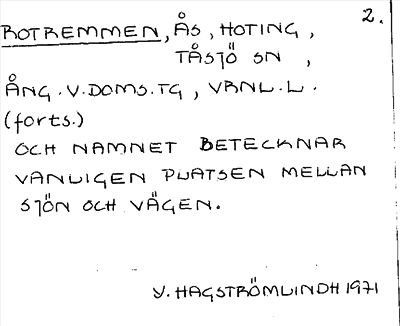 2.
ROTREMMEN, ÅS, HOTING,
TÅSJÖ SN,
ÅNG. V. DOMS. TG, VRNL. L.
(forts.)
OCH NAMNET BETECKNAR
VANLIGEN PLATSEN MELLAN
SJÖN OCH VÄGEN.
V. HAGSTRÖMLINDH 1971